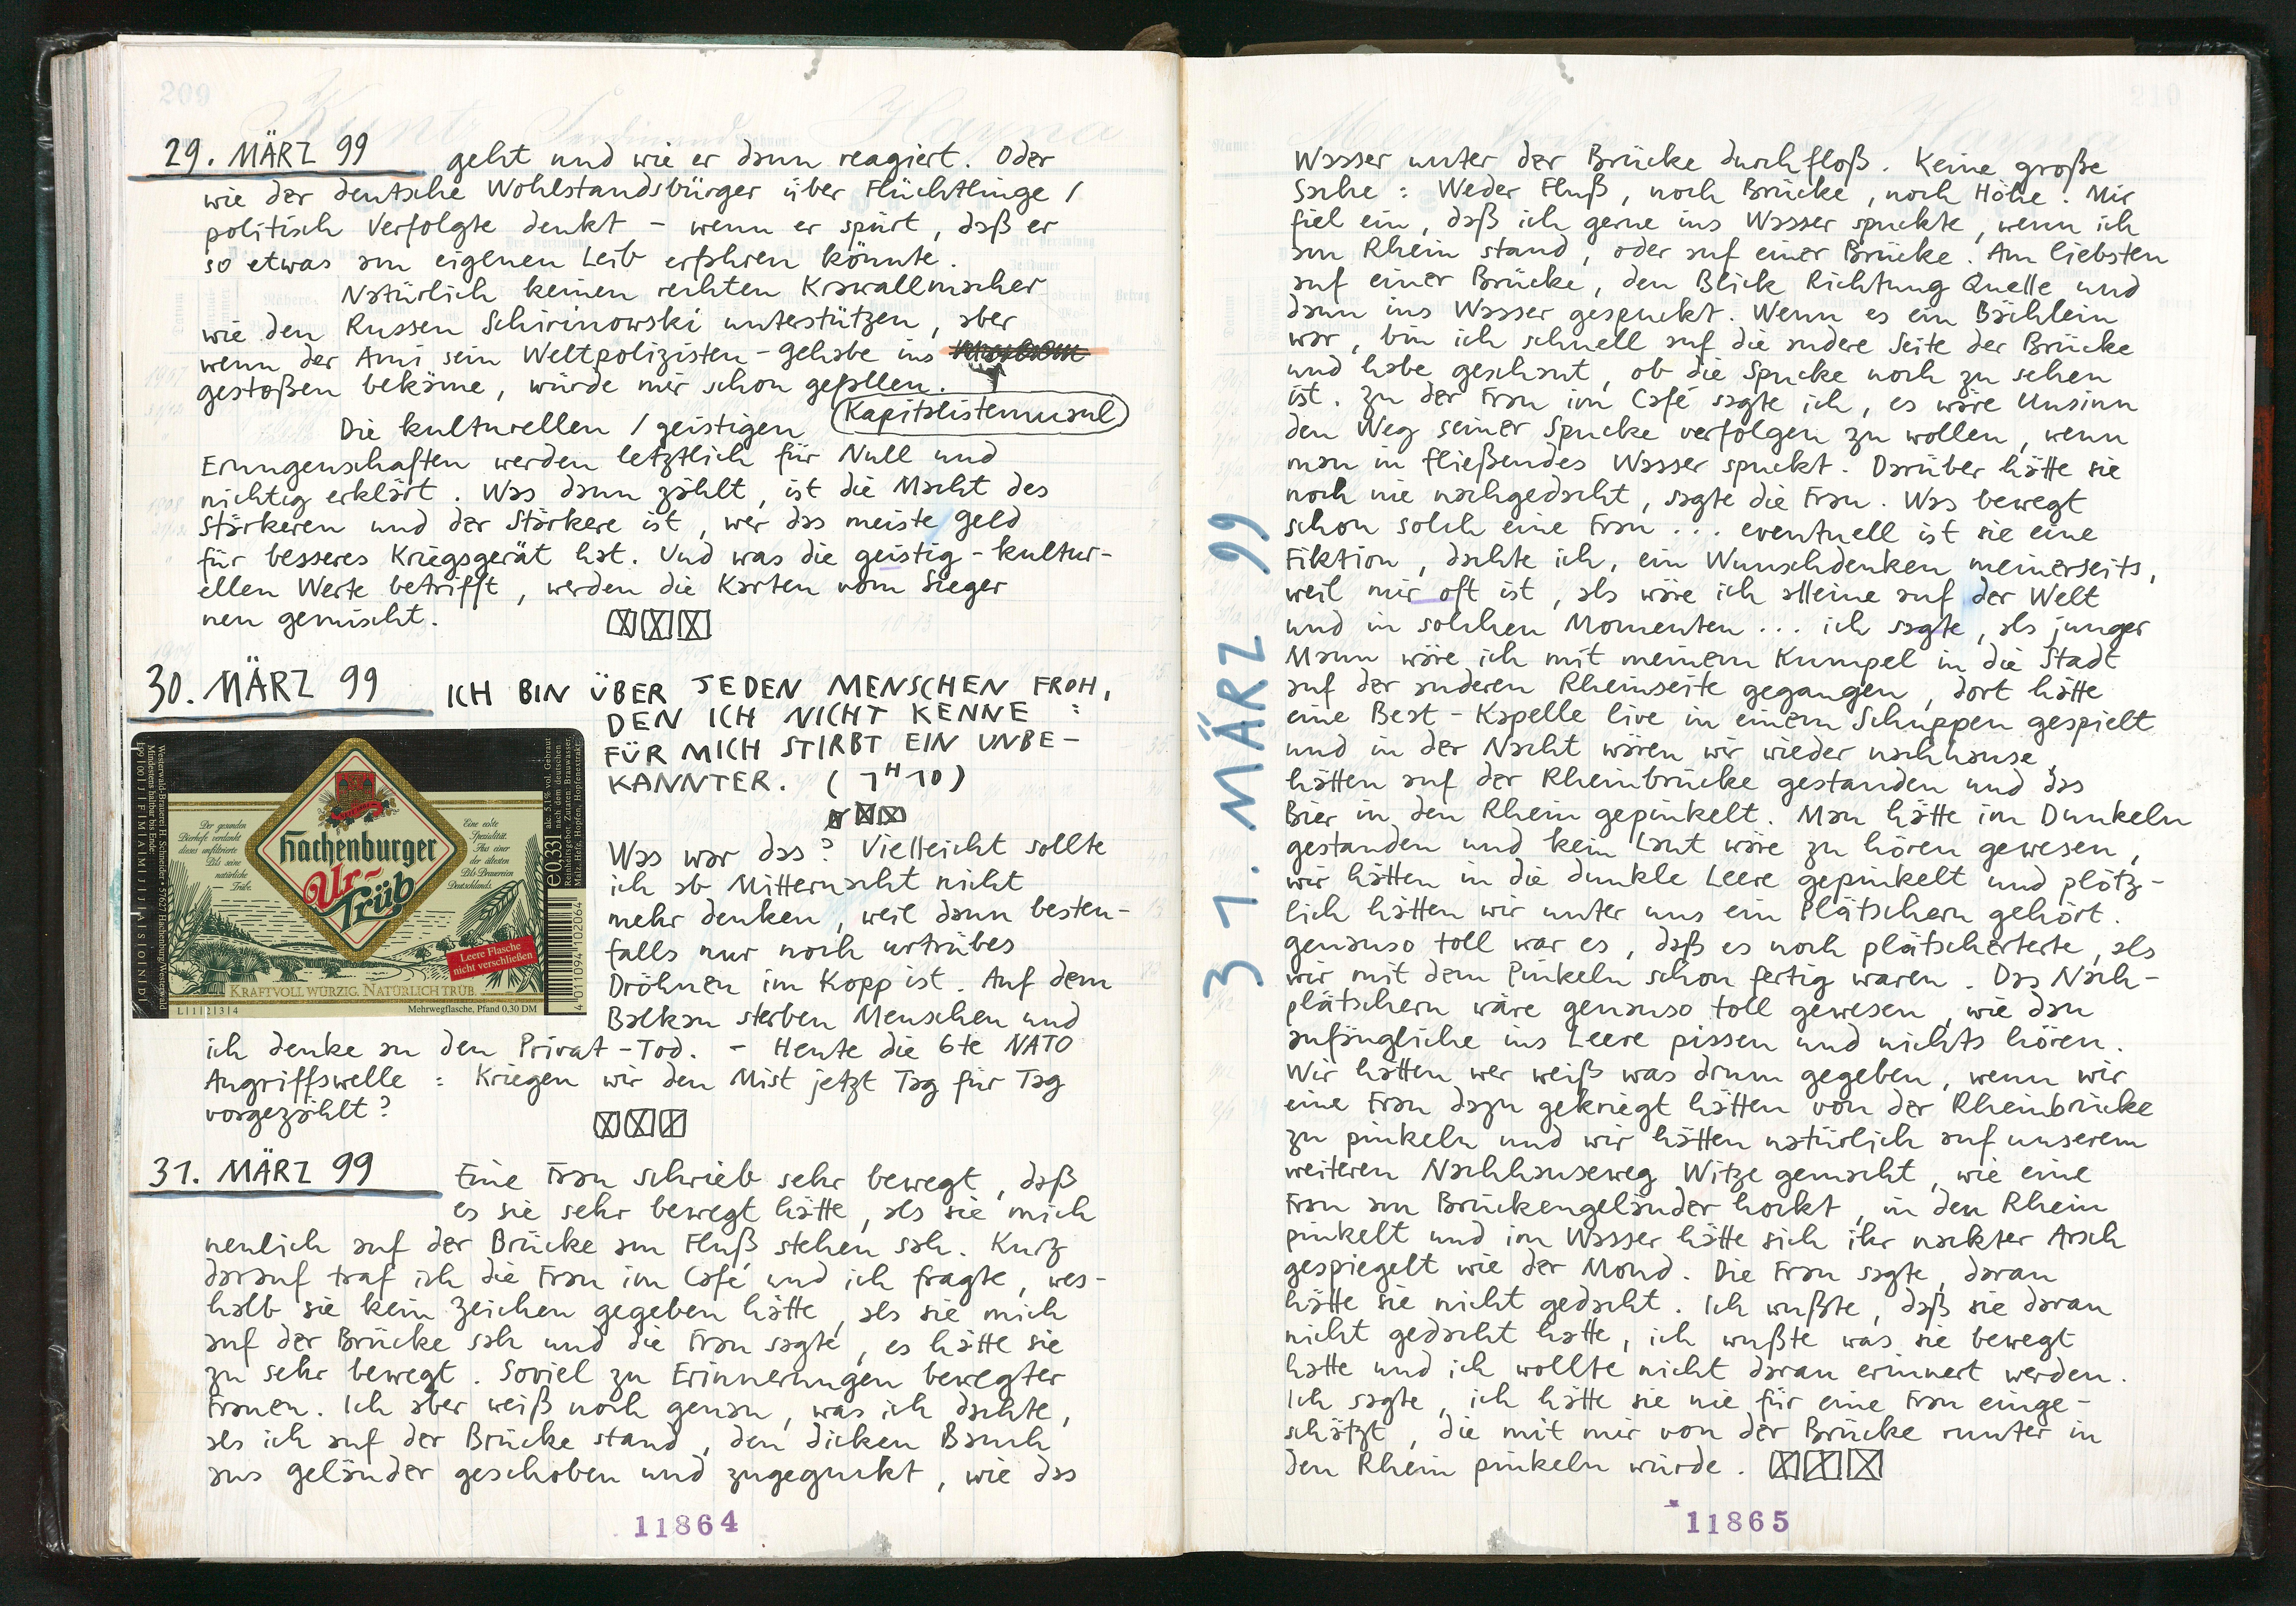 209
29. MÄRZ 99 geht und wie er dann reagiert. Oder
wie der deutsche Wohlstandsbürger über Flüchtlinge /
politisch Verfolgte denkt – wenn er spürt, daß er
so etwas am eigenen Leib erfahren könnte.
Natürlich keinen rechten Krawallmacher
wie den Russen Schirinowski unterstützen, aber
wenn der Ami sein Weltpolizisten-Gehabe ins
gestoßen bekäme, würde mir schon gefallen.
Kapitalistenmaul
Die kulturellen / geistigen
Errungenschaften werden letztlich für Null und
nichtig erklärt. Was dann zählt, ist die Macht des
Stärkeren und der Stärkere ist, wer das meiste Geld
für besseres Kriegsgerät hat. Und was die geistig-kultur-
ellen Werte betrifft, werden die Karten vom Sieger
neu gemischt.
30. MÄRZ 99 ICH BIN ÜBER JEDEN MENSCHEN FROH,
DEN ICH NICHT KENNE :
FÜR MICH STIRBT EIN UNBE-
KANNTER. (1H10)
Westerwald-Brauerei H. Schneider • 57627 Hachenburg/Westerwald
Mindestens haltbar bis Ende:
99|00|J|F|M|A|M|J|J|A|S|O|N|D
Der gesunden
Bierhefe verdankt
dieses unfiltrierte
Pils seine
natürliche
Trübe.
Hachenburger
Ur-
Trüb
Eine echte
Spezialität.
Aus einer
der ältesten
Pils-Brauereien
Deutschlands.
Leere Flasche
nicht verschließen
KRAFTVOLL WÜRZIG. NATÜRLICH TRÜB.
L|1|2|3|4
Mehrwegflasche, Pfand 0,30 DM
e 0,33 l
alc. 5,1% vol. Gebraut
nach dem deutschen
Reinheitsgebot. Zutaten: Brauwasser,
Malz, Hefe, Hopfen, Hopfenextrakt.
4 011094 102064
Was war das? Vielleicht sollte
ich ab Mitternacht nicht
mehr denken, weil dann besten-
falls nur noch urtrübes
Dröhnen im Kopp ist. Auf dem
Balkan sterben Menschen und
ich denke an den Privat-Tod. – Heute die 6te NATO
Angriffswelle : Kriegen wir den Mist jetzt Tag für Tag
vorgezählt?
31. MÄRZ 99 Eine Frau schrieb sehr bewegt, daß
es sie sehr bewegt hätte, als sie mich
neulich auf der Brücke am Fluß stehen sah. Kurz
darauf traf ich die Frau im Café und ich fragte, wes-
halb sie kein Zeichen gegeben hätte, als sie mich
auf der Brücke sah und die Frau sagte, es hätte sie
zu sehr bewegt. Soviel zu Erinnerungen bewegter
Frauen. Ich aber weiß noch genau, was ich dachte,
als ich auf der Brücke stand, den dicken Bauch
ans Geländer geschoben und zugeguckt, wie das
11864
210
31. MÄRZ 99
Wasser unter der Brücke durchfloß. Keine große
Sache : Weder Fluß, noch Brücke, noch Höhe. Mir
fiel ein, daß ich gerne ins Wasser spuckte, wenn ich
am Rhein stand, oder auf einer Brücke. Am liebsten
auf einer Brücke, den Blick Richtung Quelle und
dann ins Wasser gespuckt. Wenn es ein Bächlein
war, bin ich schnell auf die andere Seite der Brücke
und habe geschaut, ob die Spucke noch zu sehen
ist. Zu der Frau im Café sagte ich, es wäre Unsinn
den Weg seiner Spucke verfolgen zu wollen, wenn
man in fließendes Wasser spuckt. Darüber hätte sie
noch nie nachgedacht, sagte die Frau. Was bewegt
schon solch eine Frau ... eventuell ist sie eine
Fiktion, dachte ich, ein Wunschdenken meinerseits,
weil mir oft ist, als wäre ich alleine auf der Welt
und in solchen Momenten ... ich sagte, als junger
Mann wäre ich mit meinem Kumpel in die Stadt
auf der anderen Rheinseite gegangen, dort hätte
eine Beat-Kapelle live in einem Schuppen gespielt
und in der Nacht wären wir wieder nachhause,
hätten auf der Rheinbrücke gestanden und das
Bier in den Rhein gepinkelt. Man hätte im Dunkeln
gestanden und kein Laut wäre zu hören gewesen,
wir hätten in die dunkle Leere gepinkelt und plötz-
lich hätten wir unter uns ein Plätschern gehört.
Genauso toll war es, daß es noch plätscherterte, als
wir mit dem Pinkeln schon fertig waren. Das Nach-
plätschern wäre genauso toll gewesen, wie dan
anfängliche ins Leere pissen und nichts hören.
Wir hätten wer weiß was drum gegeben, wenn wir
eine Frau dazu gekriegt hätten von der Rheinbrücke
zu pinkeln und wir hätten natürlich auf unserem
weiteren Nachhauseweg Witze gemacht, wie eine
Frau am Brückengeländer hockt, in den Rhein
pinkelt und im Wasser hätte sich ihr nackter Arsch
gespiegelt wie der Mond. Die Frau sagte, daran
hätte sie nicht gedacht. Ich wußte, daß sie daran
nicht gedacht hatte, ich wußte was sie bewegt
hatte und ich wollte nicht daran erinnert werden.
Ich sagte, ich hätte sie nie für eine Frau einge-
schätzt, die mit mir von der Brücke runter in
den Rhein pinkeln würde.
11865